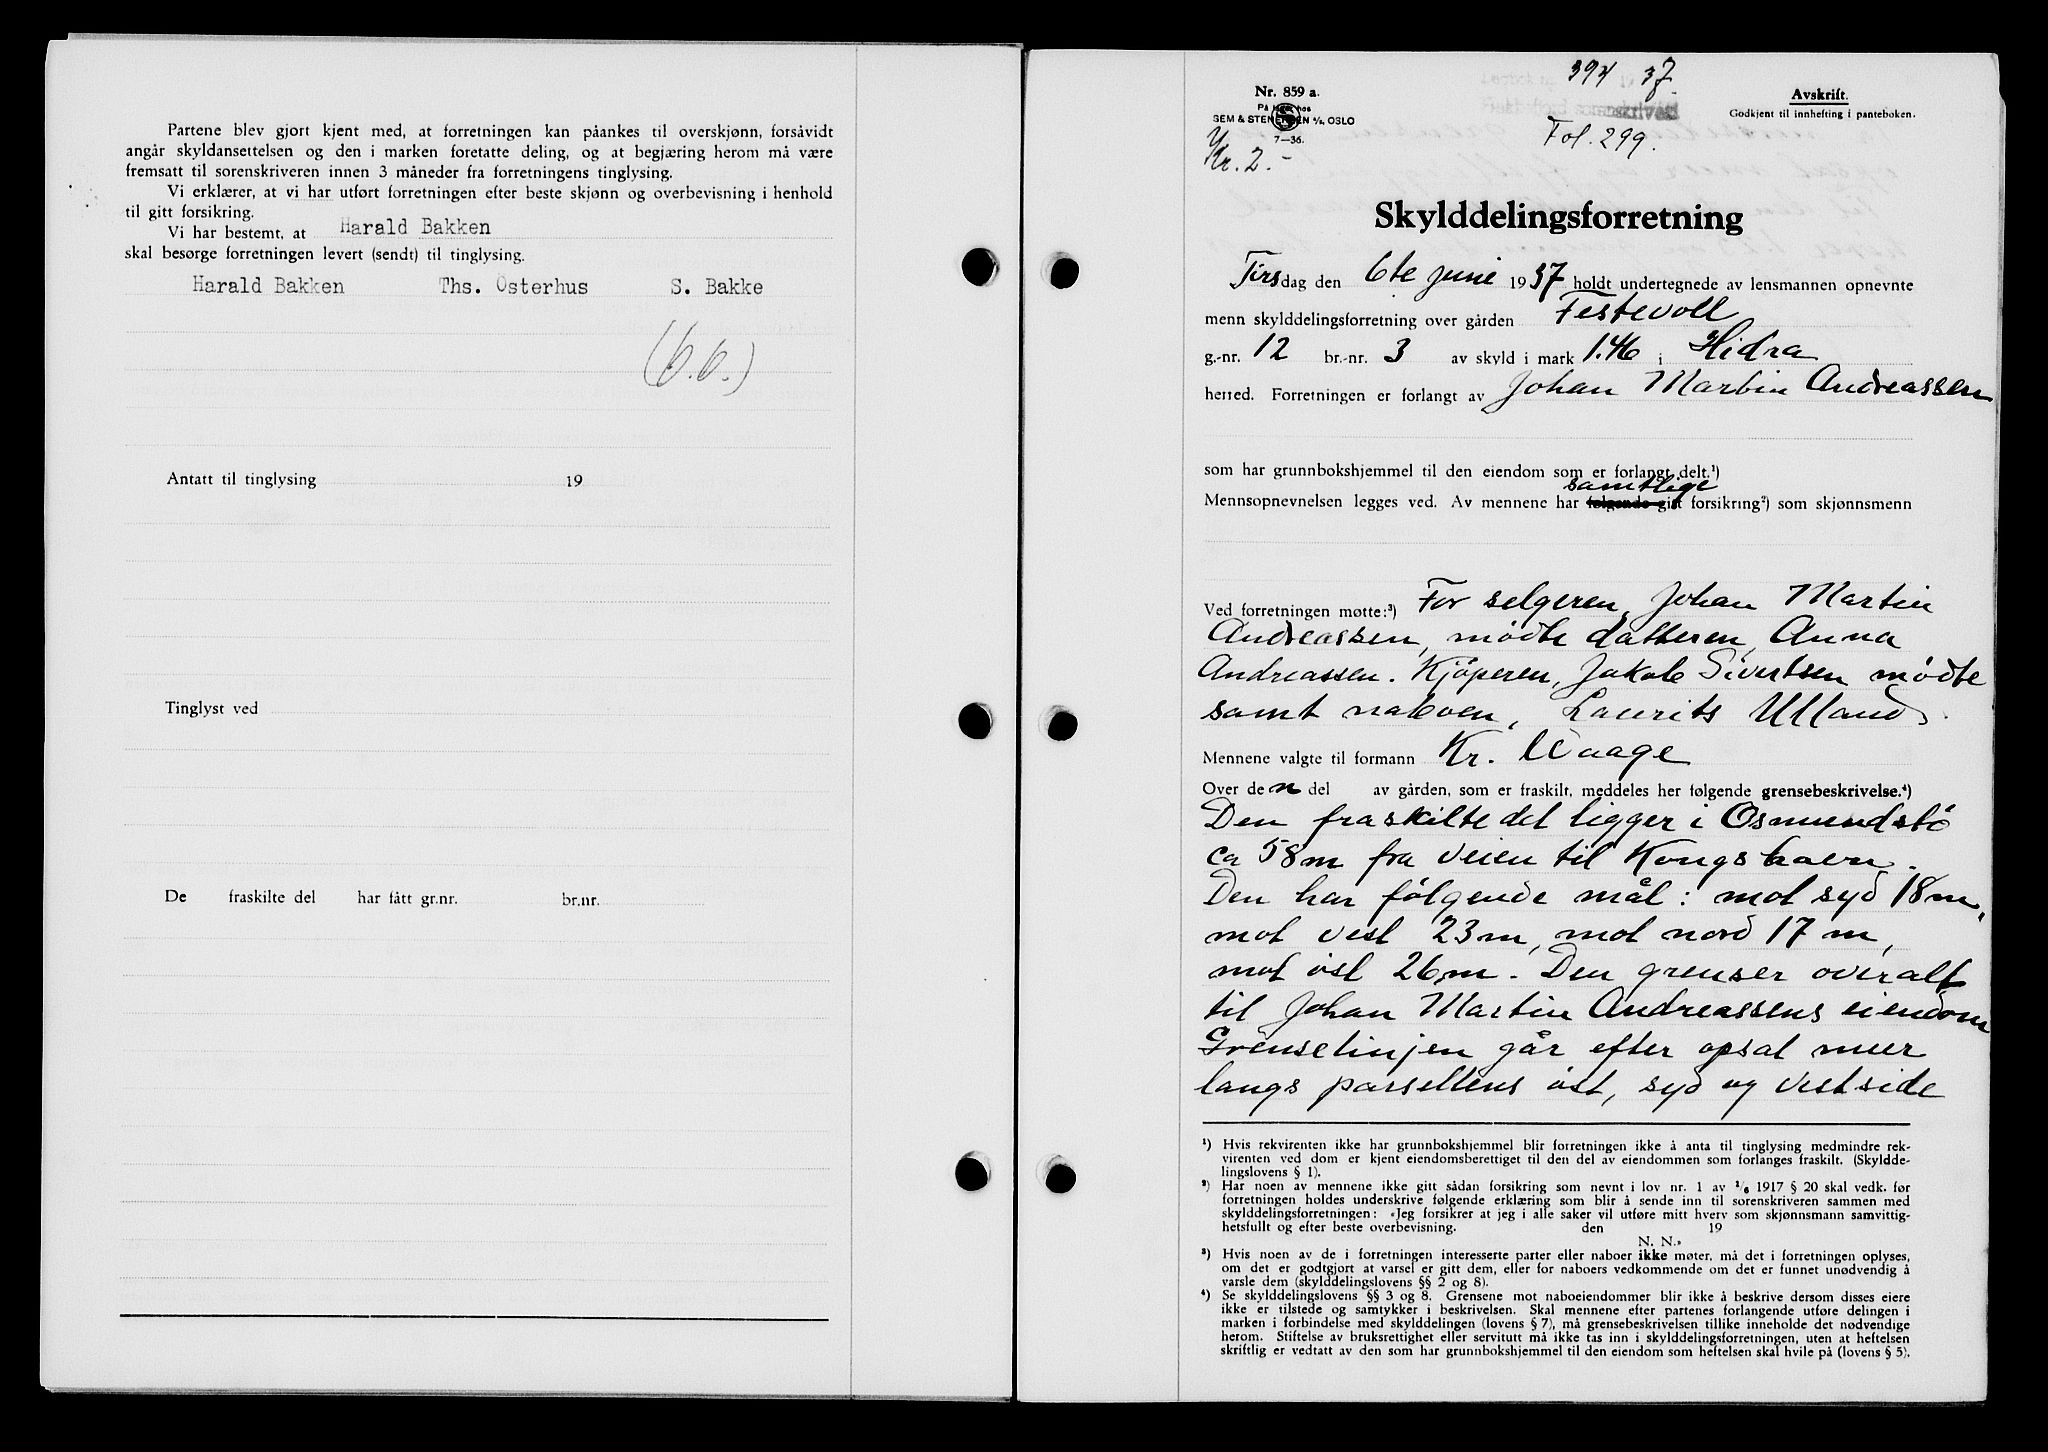 Partene blev gjort kjent med, at forretningen kan påankes til overskjønn, forsåvidt
angår skyldansettelsen og den i marken foretatte deling, og at begjæring herom må være
fremsatt til sorenskriveren innen 3 måneder fra forretningens tinglysing.
Vi erklærer, at vi har utført forretningen efter beste skjønn og overbevisning i henhold
til gitt forsikring.
Vi har bestemt, at Harald Bakken
skal besørge forretningen levert (sendt) til tinglysing.
Harald Bakken Ths. Österhus S. Bakke
(6.6.)
Antatt til tinglysing 19
Tinglyst ved
De fraskilte del har fått gr.nr. br.nr.
394 37.
Nr. 859 a.
På lager hos
SEM & STENERSEN A/S, OSLO
7—36.
Kr. 2.-
Fol. 299.
Avskrift.
Godkjent til innhefting i panteboken.
Skylddelingsforretning
Tirsdag den 6te juni 1937 holdt undertegnede av lensmannen opnevnte
menn skylddelingsforretning over gården Festevoll
g.-nr. 12 br.-nr. 3 av skyld i mark 1.46 i Hidra
herred. Forretningen er forlangt av Johan Martin Andreassen
som har grunnbokshjemmel til den eiendom som er forlangt delt.¹)
samtlige
Mennsopnevnelsen legges ved. Av mennene har følgende gitt forsikring²) som skjønnsmenn
Ved forretningen møtte:³) For selgeren, Johan Martin
Andreassen, mødte datteren, Anna
Andreassen. Kjøperen, Jakob Sivertsen mødte
samt naboen, Laurits Ulland.
Mennene valgte til formann Kr. Waage
Over den del av gården, som er fraskilt, meddeles her følgende grensebeskrivelse.⁴)
Den fraskilte del ligger i Osmundstø
ca 58m fra veien til Kongshavn.
Den har følgende mål: mot syd 18m,
mot vest 23m, mot nord 17 m,
mot øst 26m. Den grenser overalt
til Johan Martin Andreassens eiendom
Grenselinjen går efter opsat meer
langs parsellens øst, syd og vestside
¹) Hvis rekvirenten ikke har grunnbokshjemmel blir forretningen ikke å anta til tinglysing medmindre rek-
virenten ved dom er kjent eiendomsberettiget til den del av eiendommen som forlanges fraskilt. (Skyldde-
lingslovens § 1).
²) Har noen av mennene ikke gitt sådan forsikring som nevnt i lov nr. 1 av ¹/₆ 1917 § 20 skal vedk. før
forretningen holdes underskrive følgende erklæring som blir å sende inn til sorenskriveren sammen med
skylddelingsforretningen: «Jeg forsikrer at jeg i alle saker vil utføre mitt hverv som skjønnsmann samvittig-
hetsfullt og efter beste overbevisning. den 19
N. N.»
³) Hvis noen av de i forretningen interesserte parter eller naboer ikke møter, må det i forretningen oplyses,
om det er godtgjort at varsel er gitt dem, eller for naboers vedkommende om det er funnet unødvendig å
varsle dem (skylddelingslovens §§ 2 og 8).
⁴) Se skylddelingslovens §§ 3 og 8. Grensene mot naboeiendommer blir ikke å beskrive dersom disses eiere
ikke er tilstede og samtykker i beskrivelsen. Skal mennene efter partenes forlangende utføre delingen i
marken i forbindelse med skylddelingen (lovens § 7), må grensebeskrivelsen tillike inneholde det nødvendige
herom. Stiftelse av bruksrettighet eller servitutt må ikke tas inn i skylddelingsforretningen, uten at heftelsen
skriftlig er vedtatt av den som har grunnbokshjemmel til den eiendom som heftelsen skal hvile på (lovens § 5).